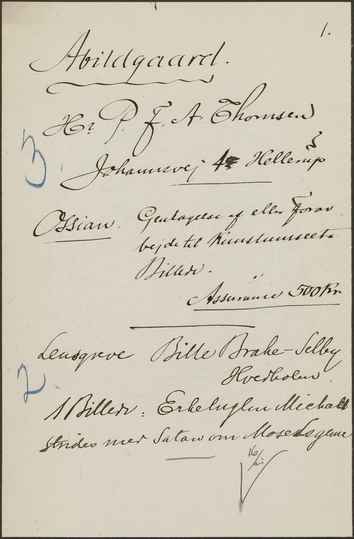 1.
Abildgaard.
Hr P. F. A. Thomsen
3 Johannevej 4 Hellerup
Ossian. Gentagelse af eller Forar
bejde til Kunstmuseets
Billede.
Assurance 500 Kr.
Lensgreve Bille Brahe-Selby
2 Hvedholm.
1 Billede: Erkeenglen Michael
strides med Satan om Moses Legeme